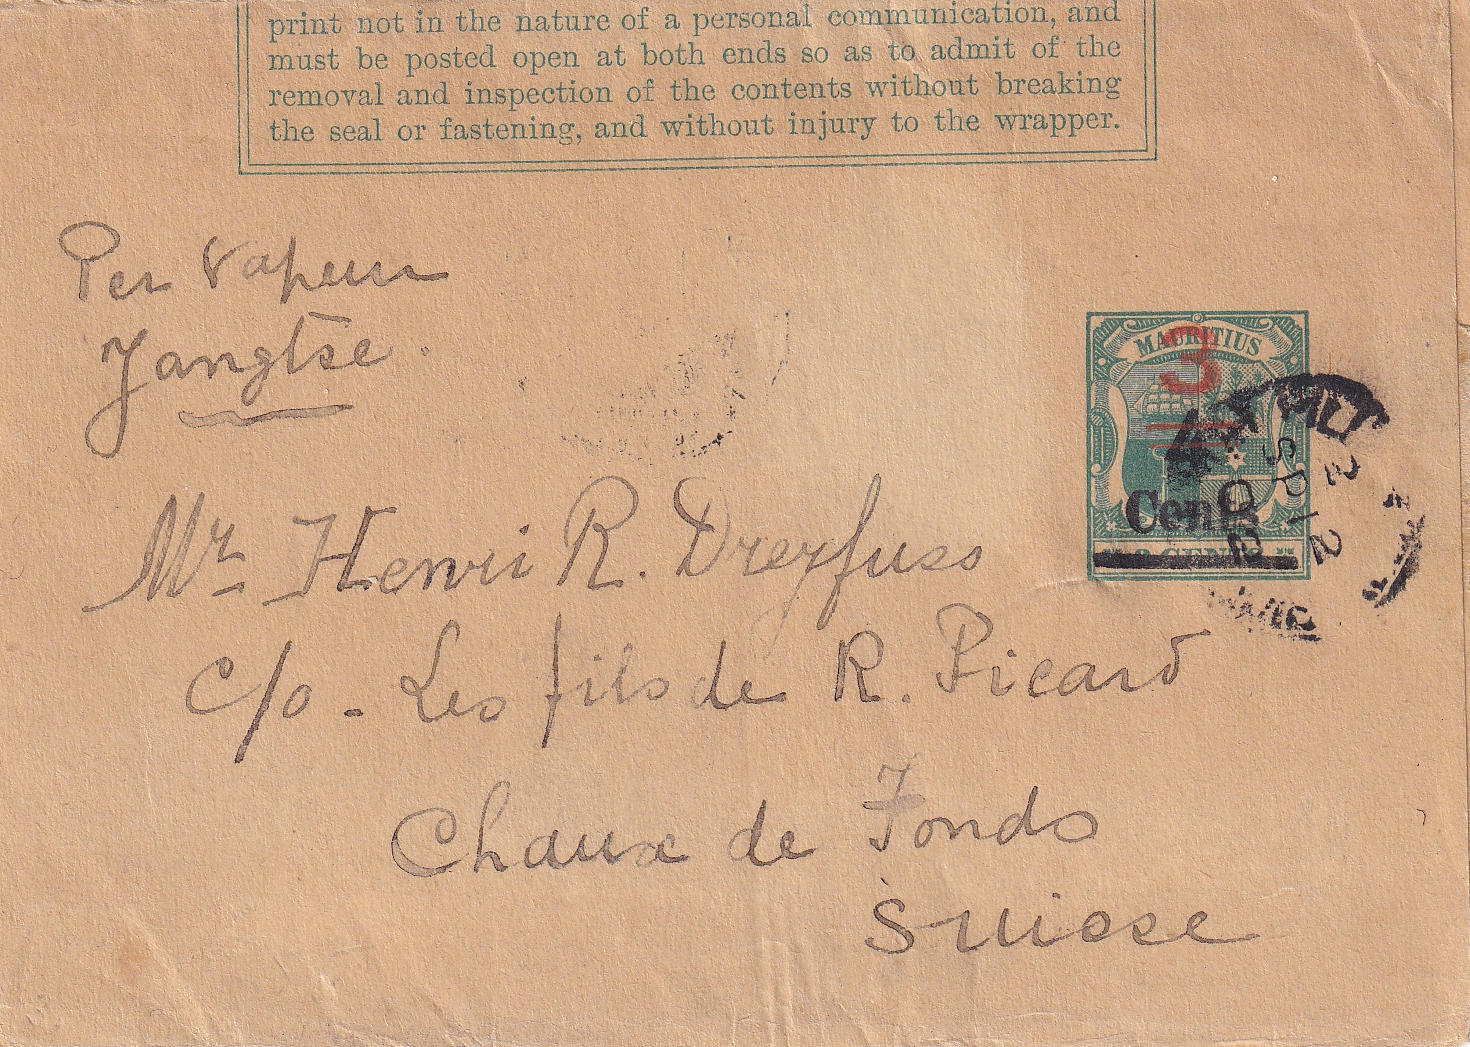 print not in the nature of a personal communication, and
must be posted open at both ends so as to admit of the
removal and inspection of the contents without breaking
the seal or fastening, and without injury to the wrapper.
Per Vapeur
Yangtse.
MAURITIUS
3
4
Cents
Mr Henri R. Dreyfuss
c/o - Les fils de R. Picard
Chaux de Fonds
Suisse